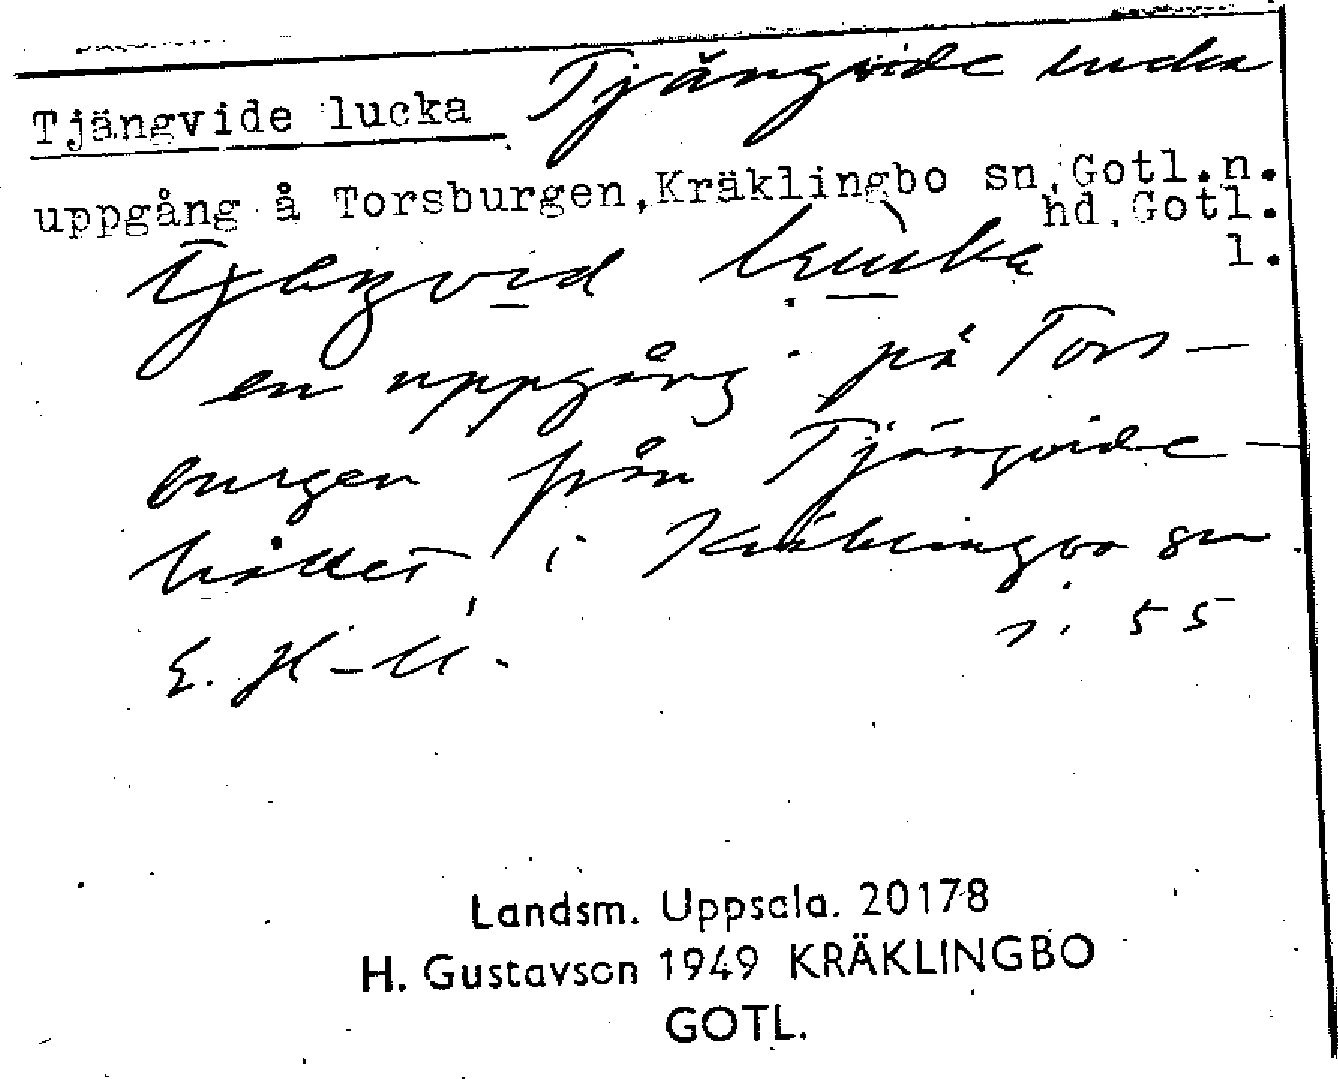 Tjängvide lucka Tjängvide lucka
uppgång å Torsburgen, Kräklingbo sn, Gotl.n.
hd, Gotl.
l.
en uppgång på Tors-
burgen från Tjängvide-
hållet i Kräklingbo sn
s. 55
Landsm. Uppsala. 20178
H. Gustavson 1949 KRÄKLINGBO
GOTL.